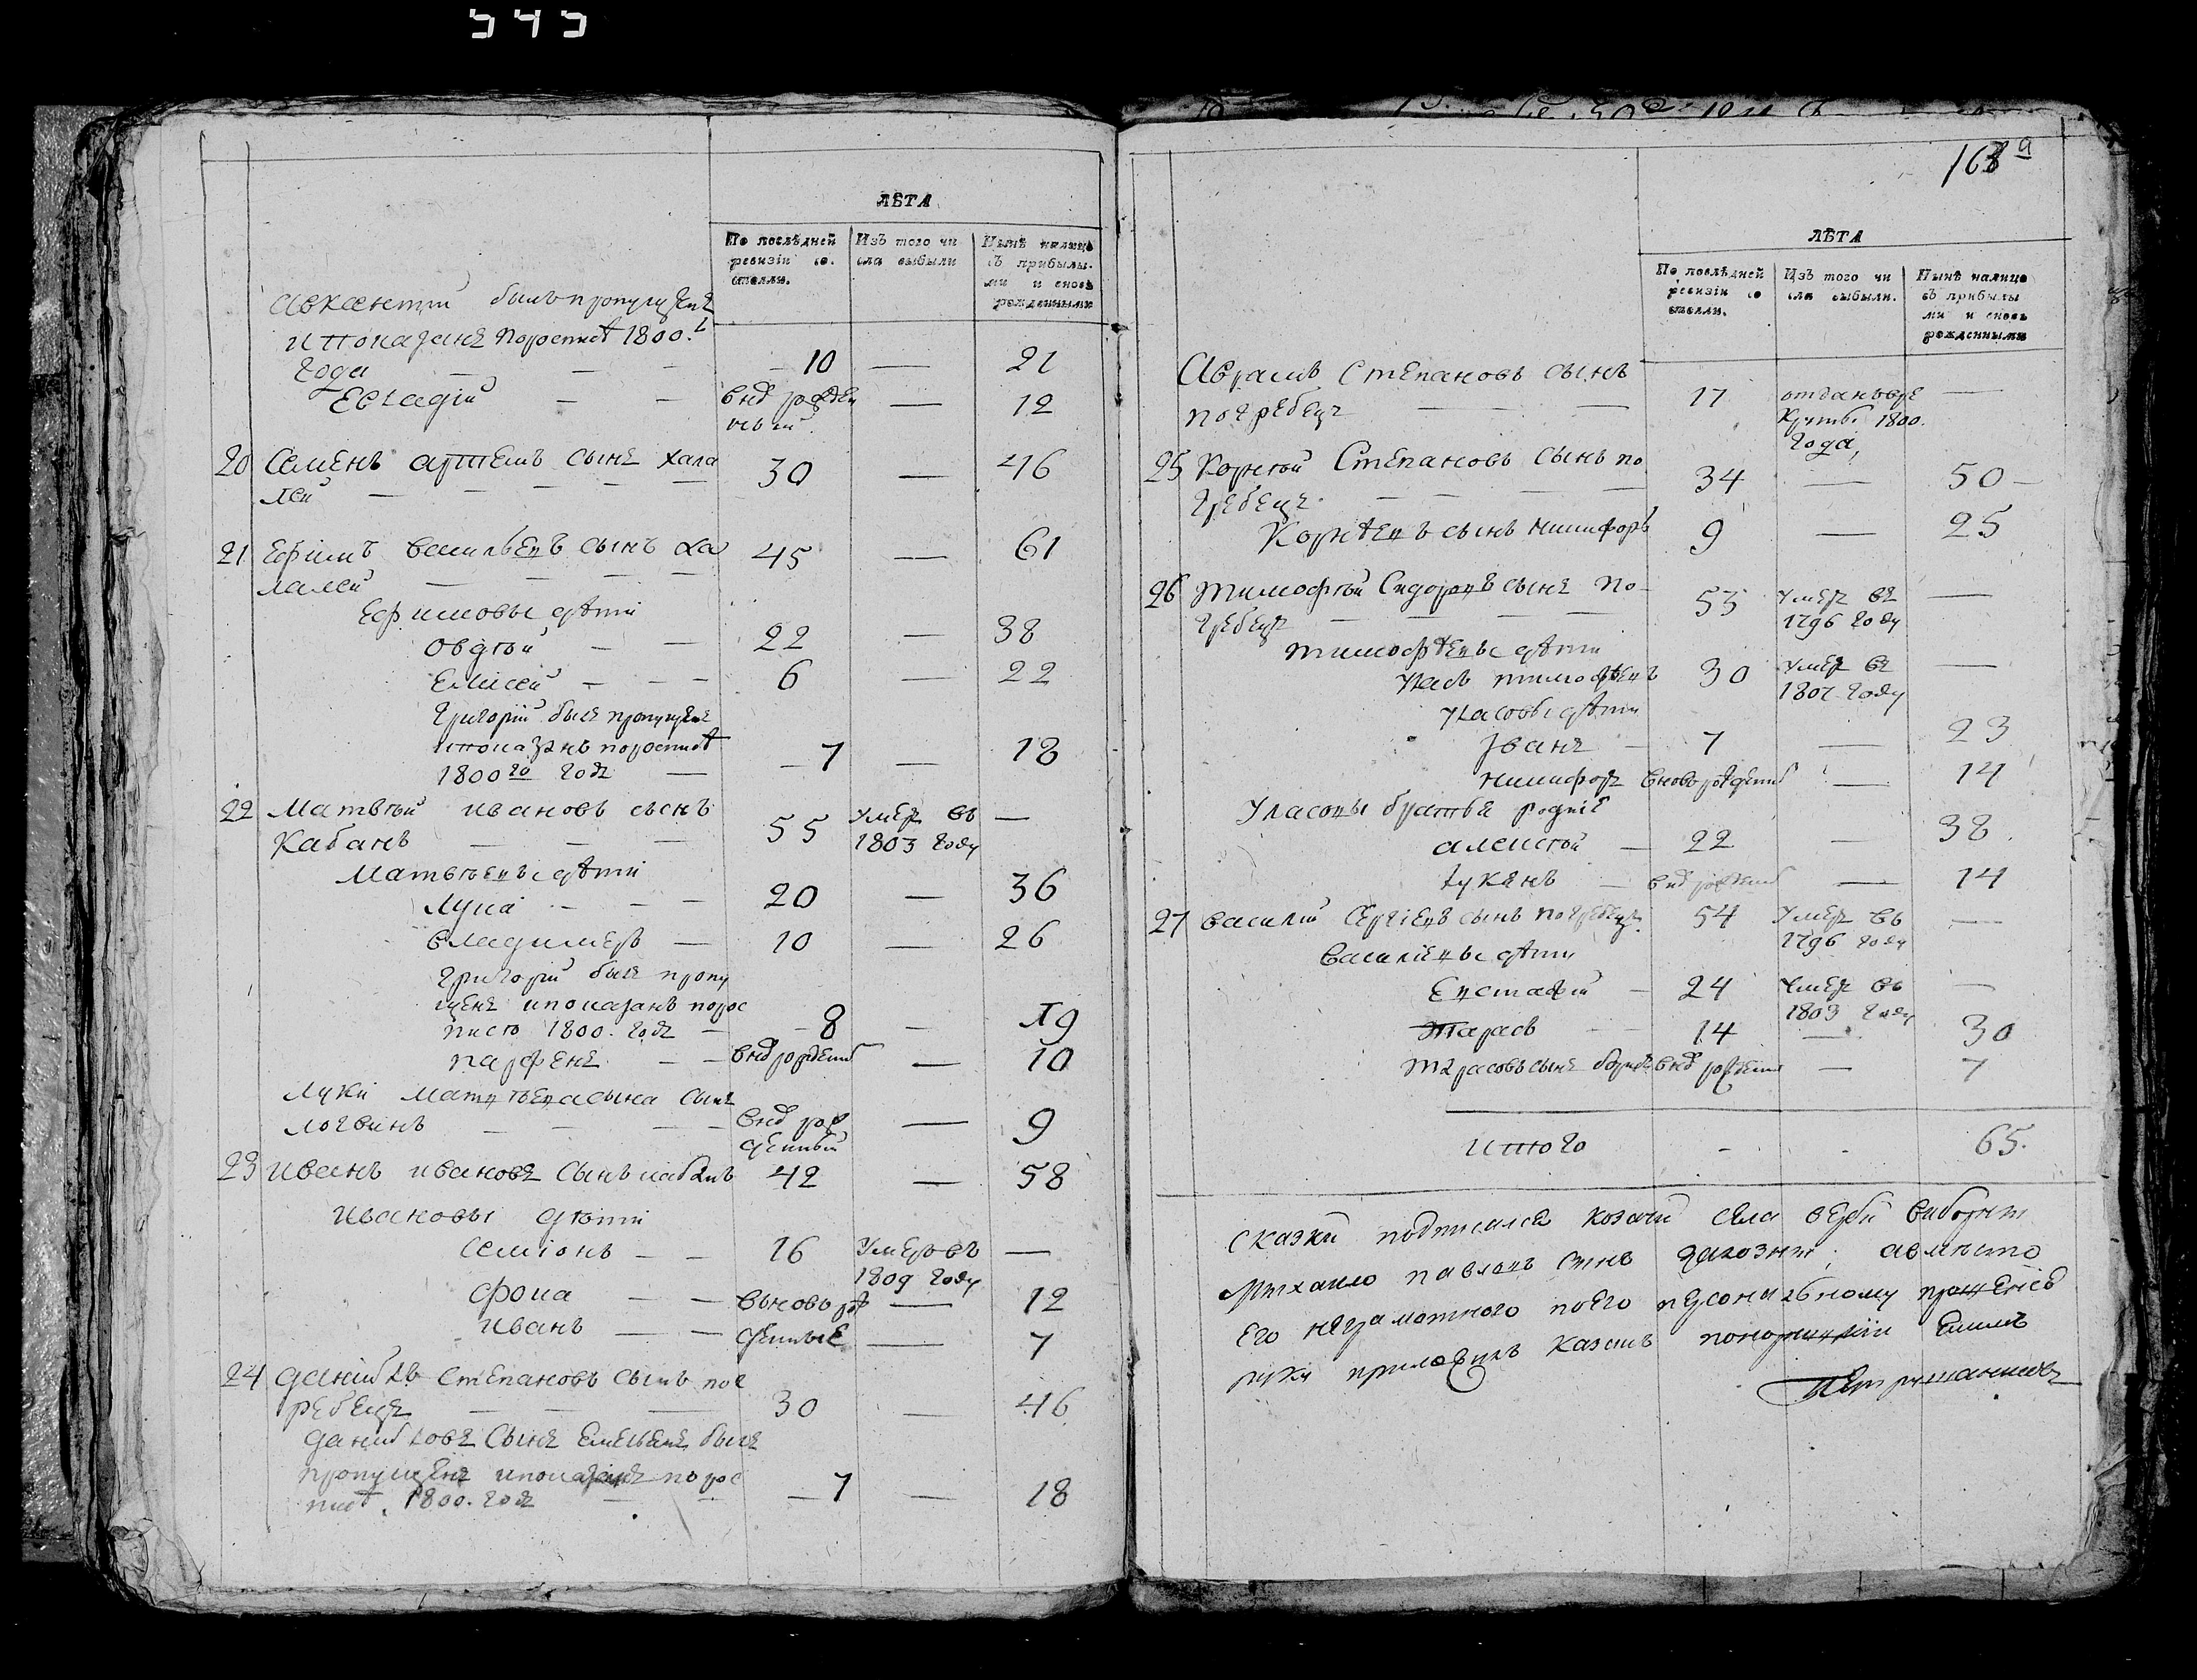 545
ЛѢТА
По послѣдней ревизіи состояли.
Изъ того числа выбыли
Нынѣ налицо съ прибылыми и вновь рожденными
Авксентій былъ пропущенъ
и показанъ порописѣ 1800.г
года — — — 10 — 21
Евгадій — — внѣ рожден — 12
ный
20 Семенъ артемъ сынъ хала 30 — 46
лей — — — — —
21 Ефимъ васильевъ сынъ ха 45 — 61
ламей — — — —
Ефимовы дѣти
Овдѣй — — 22 — 38
Елисей — — — 6 — 22
Григорій былъ пропущенъ
и показанъ поросписѣ
1800го годъ — — 7 — 18
22 Матвѣй ивановъ сынъ
Кабанъ — — — 55 умеръ въ —
1803 году
Матвѣевы дѣти
Лука — — — 20 — 36
владимеръ — 10 — 26
Григорій былъ пропу
щенъ и показанъ порос
писѣ 1800. годъ — 8 — 19
парфенъ — — внѣ рожденій — 10
Луки матвѣева сына сынъ
логвинъ — — — — внѣ рож — 9
денный
23 иванъ ивановъ сынъ кабанъ 42 — 58
ивановы дѣти
семіонъ — — 16 умеръ въ —
1809 году
фока — — вновь рож — 12
иванъ — — денные — 7
24 данило степановъ сынъ пог
ребецъ — — — 30 — 46
даниловъ сынъ емельянъ былъ
пропущенъ и показанъ порос
писѣ. 1800. годъ — — — 7 — 18
168 а
ЛѢТА
По послѣдней ревизіи состояли.
Изъ того числа выбыли.
Нынѣ налицо съ прибылыми и вновь рожденными
Аврамъ Степановъ сынъ
погребецъ — — — 17 отданъ вре —
круты 1800.
года,
25 Корнѣй Степановъ сынъ по
гребецъ — — — — 34 — 50 —
Корнѣевъ сынъ никифоръ 9 — 25
26 тимофѣй Сидоровъ сынъ по
гребецъ — — — — 55 умеръ въ —
1796 году
тимофѣевы дѣти
Уласъ тимофѣевъ 30 умеръ въ —
1807 году
уласовы дѣти
Іванъ — 7 — 23
никифоръ вновь рожденій — 14
Уласовы братья родніе
алексѣй — 22 — 38.
лукянъ — внѣ рожденій — 14
27 василій Сергіевъ сынъ погребецъ 54 умеръ въ —
1796 году
Василіевы дѣти
Евстафій — 24 умеръ въ —
1803 году
Тарасъ — — 14 — 30
тарасовъ сынъ борисъ внѣ рожденій — 7
итого - . 65.
сказки подписался козачій села верби виборній
михайло павловъ синъ ; авмѣсто
его неграмотного поего персоналному прошеніи
руку приложилъ казакъ